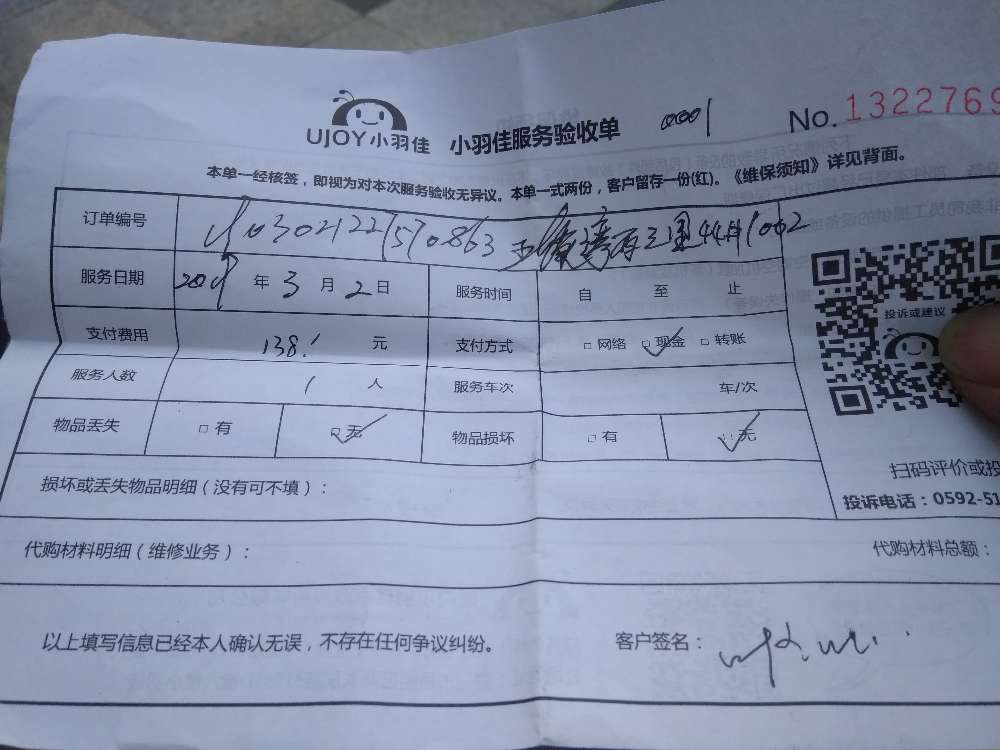 UJOY小羽佳 小羽佳服务验收单 0001 No.1322769
本单一经核签，即视为对本次服务验收无异议。本单一式两份，客户留存一份(红)。《维保须知》详见背面。
订单编号
服务日期 2019 年 3 月 2 日 服务时间 自 至 止
支付费用 138. 元 支付方式 □ 网络 □ 现金 □ 转账
服务人数 1 人 服务车次 车/次
物品丢失 □ 有 □ 无 物品损坏 □ 有 □ 无
投诉或建议
扫码评价或投
投诉电话：0592-51
损坏或丢失物品明细（没有可不填）：
代购材料明细（维修业务）： 代购材料总额：
以上填写信息已经本人确认无误，不存在任何争议纠纷。 客户签名：